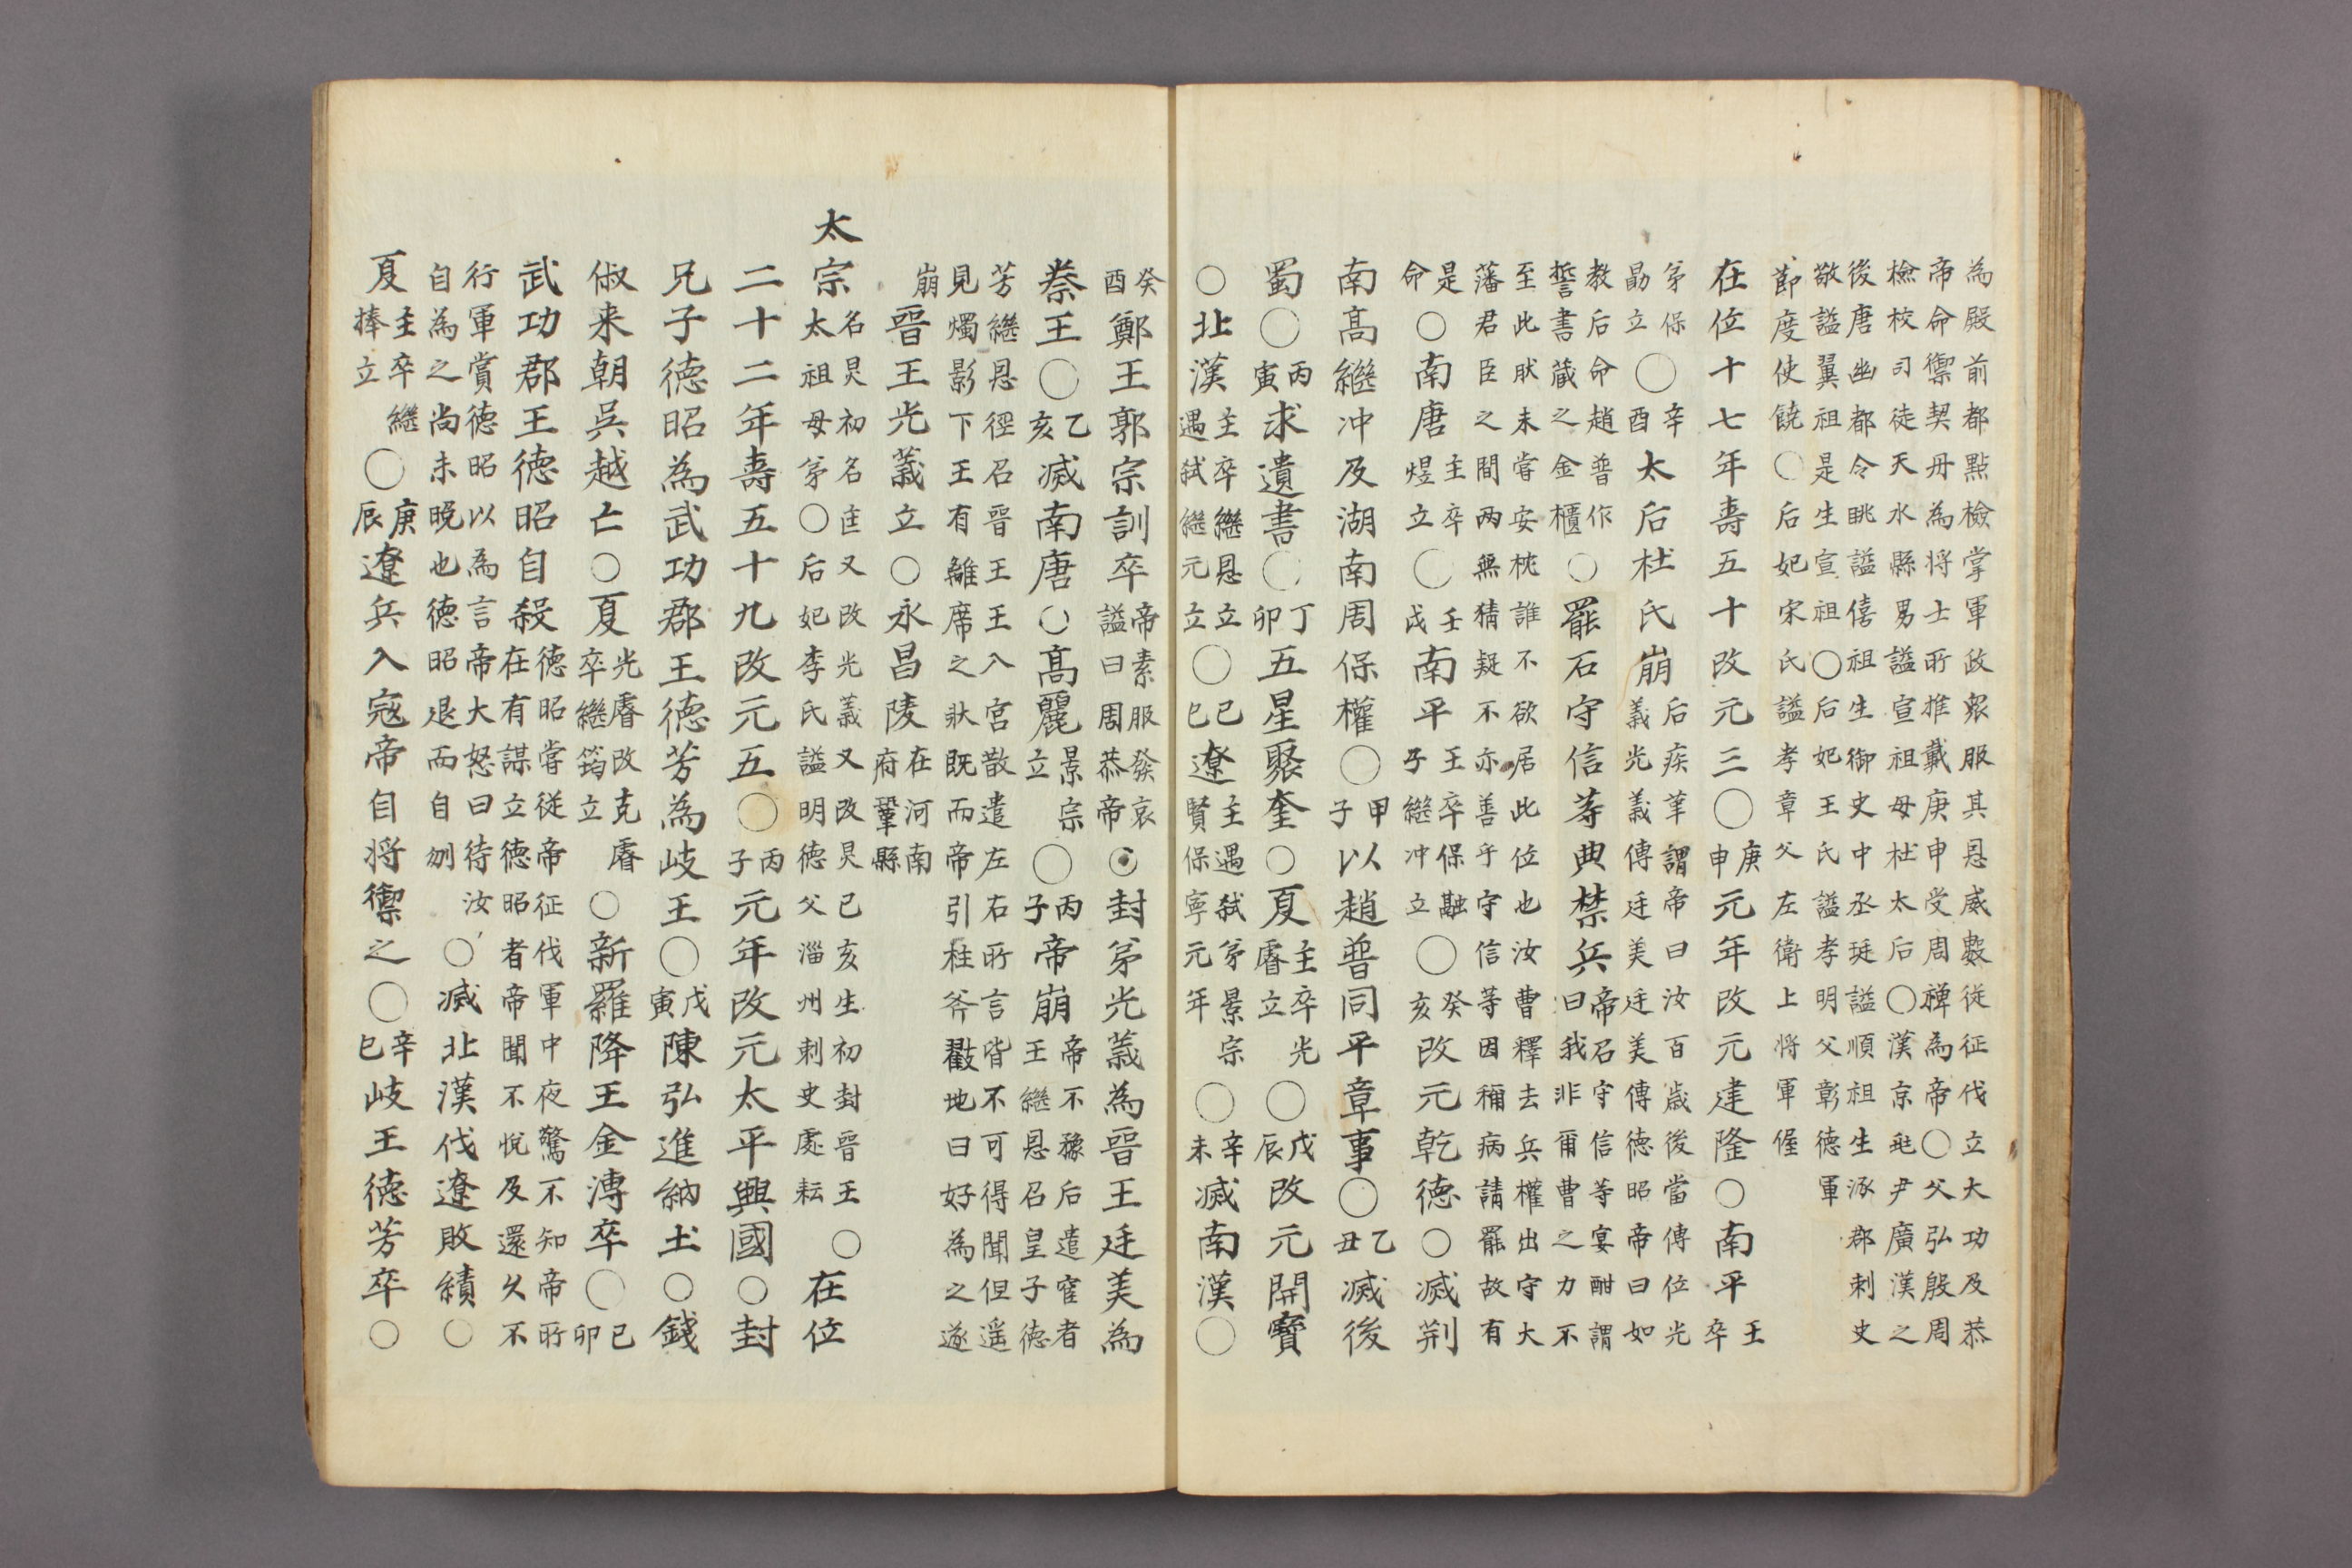 為殿前都點檢掌軍政衆服其恩威數從征伐立大功及恭
帝命禦契丹為將士所推戴庚申受周禪為帝○父弘殷周
檢校司徒天水縣男謚宣祖母杜太后○漢京兆尹廣漢之
後唐幽都令眺謚僖祖生御史中丞珽謚順祖生涿郡刺史
敬謚翼祖是生宣祖○后妃王氏謚孝明父彰德軍
節度使饒○后妃宋氏謚孝章父左衛上將軍偓
在位十七年壽五十改元三○庚申元年改元建隆○南平王卒
弟保勗立○辛酉太后杜氏崩后疾革謂帝曰汝百歲後當傳位光義光義傳廷美廷美傳德昭帝曰如
教后命趙普作誓書藏之金櫃○罷石守信等典禁兵帝召守信等宴酣謂曰我非爾曹之力不
至此肰未嘗安枕誰不欲居此位也汝曹釋去兵權出守大
藩君臣之間兩無猜疑不亦善乎守信等因稱病請罷故有
是命○南唐主卒煜立○壬戌南平王卒保融子繼冲立○癸亥改元乾德○滅荆
南高繼冲及湖南周保權○甲子以趙普同平章事○乙丑滅後
蜀○丙寅求遺書○丁卯五星聚奎○夏主卒光睿立○戊辰改元開寶
○北漢主卒繼恩立遇弒繼元立○己巳遼主遇弒弟景宗賢保寧元年○辛未滅南漢○
癸酉鄭王郭宗訓卒帝素服發哀謚曰周恭帝○封弟光義為晉王廷美為
秦王○乙亥滅南唐○高麗景宗立○丙子帝崩帝不豫后遣窀者王繼恩召皇子德
芳繼恩徑召晉王王入宮散遣左右所言皆不可得聞但遥
見燭影下王有離席之狀既而帝引柱斧戳地曰好為之遂
崩晉王光義立○永昌陵在河南府鞏縣
太宗名炅初名匡又改光義又改炅己亥生初封晉王太祖母弟○后妃李氏謚明德父淄州刺史處耘○在位
二十二年壽五十九改元五○丙子元年改元太平興國○封
兄子德昭為武功郡王德芳為岐王○戊寅陳弘進納土○錢
俶来朝吳越亡○夏光睿改克睿卒繼筠立○新羅降王金溥卒○己卯
武功郡王德昭自殺德昭嘗從帝征伐軍中夜驚不知帝所在有謀立德昭者帝聞不悅及還久不
行軍賞德昭以為言帝大怒曰待汝自為之尚未晚也德昭退而自刎○滅北漢伐遼敗績○
夏主卒繼捧立○庚辰遼兵入寇帝自將禦之○辛巳岐王德芳卒○